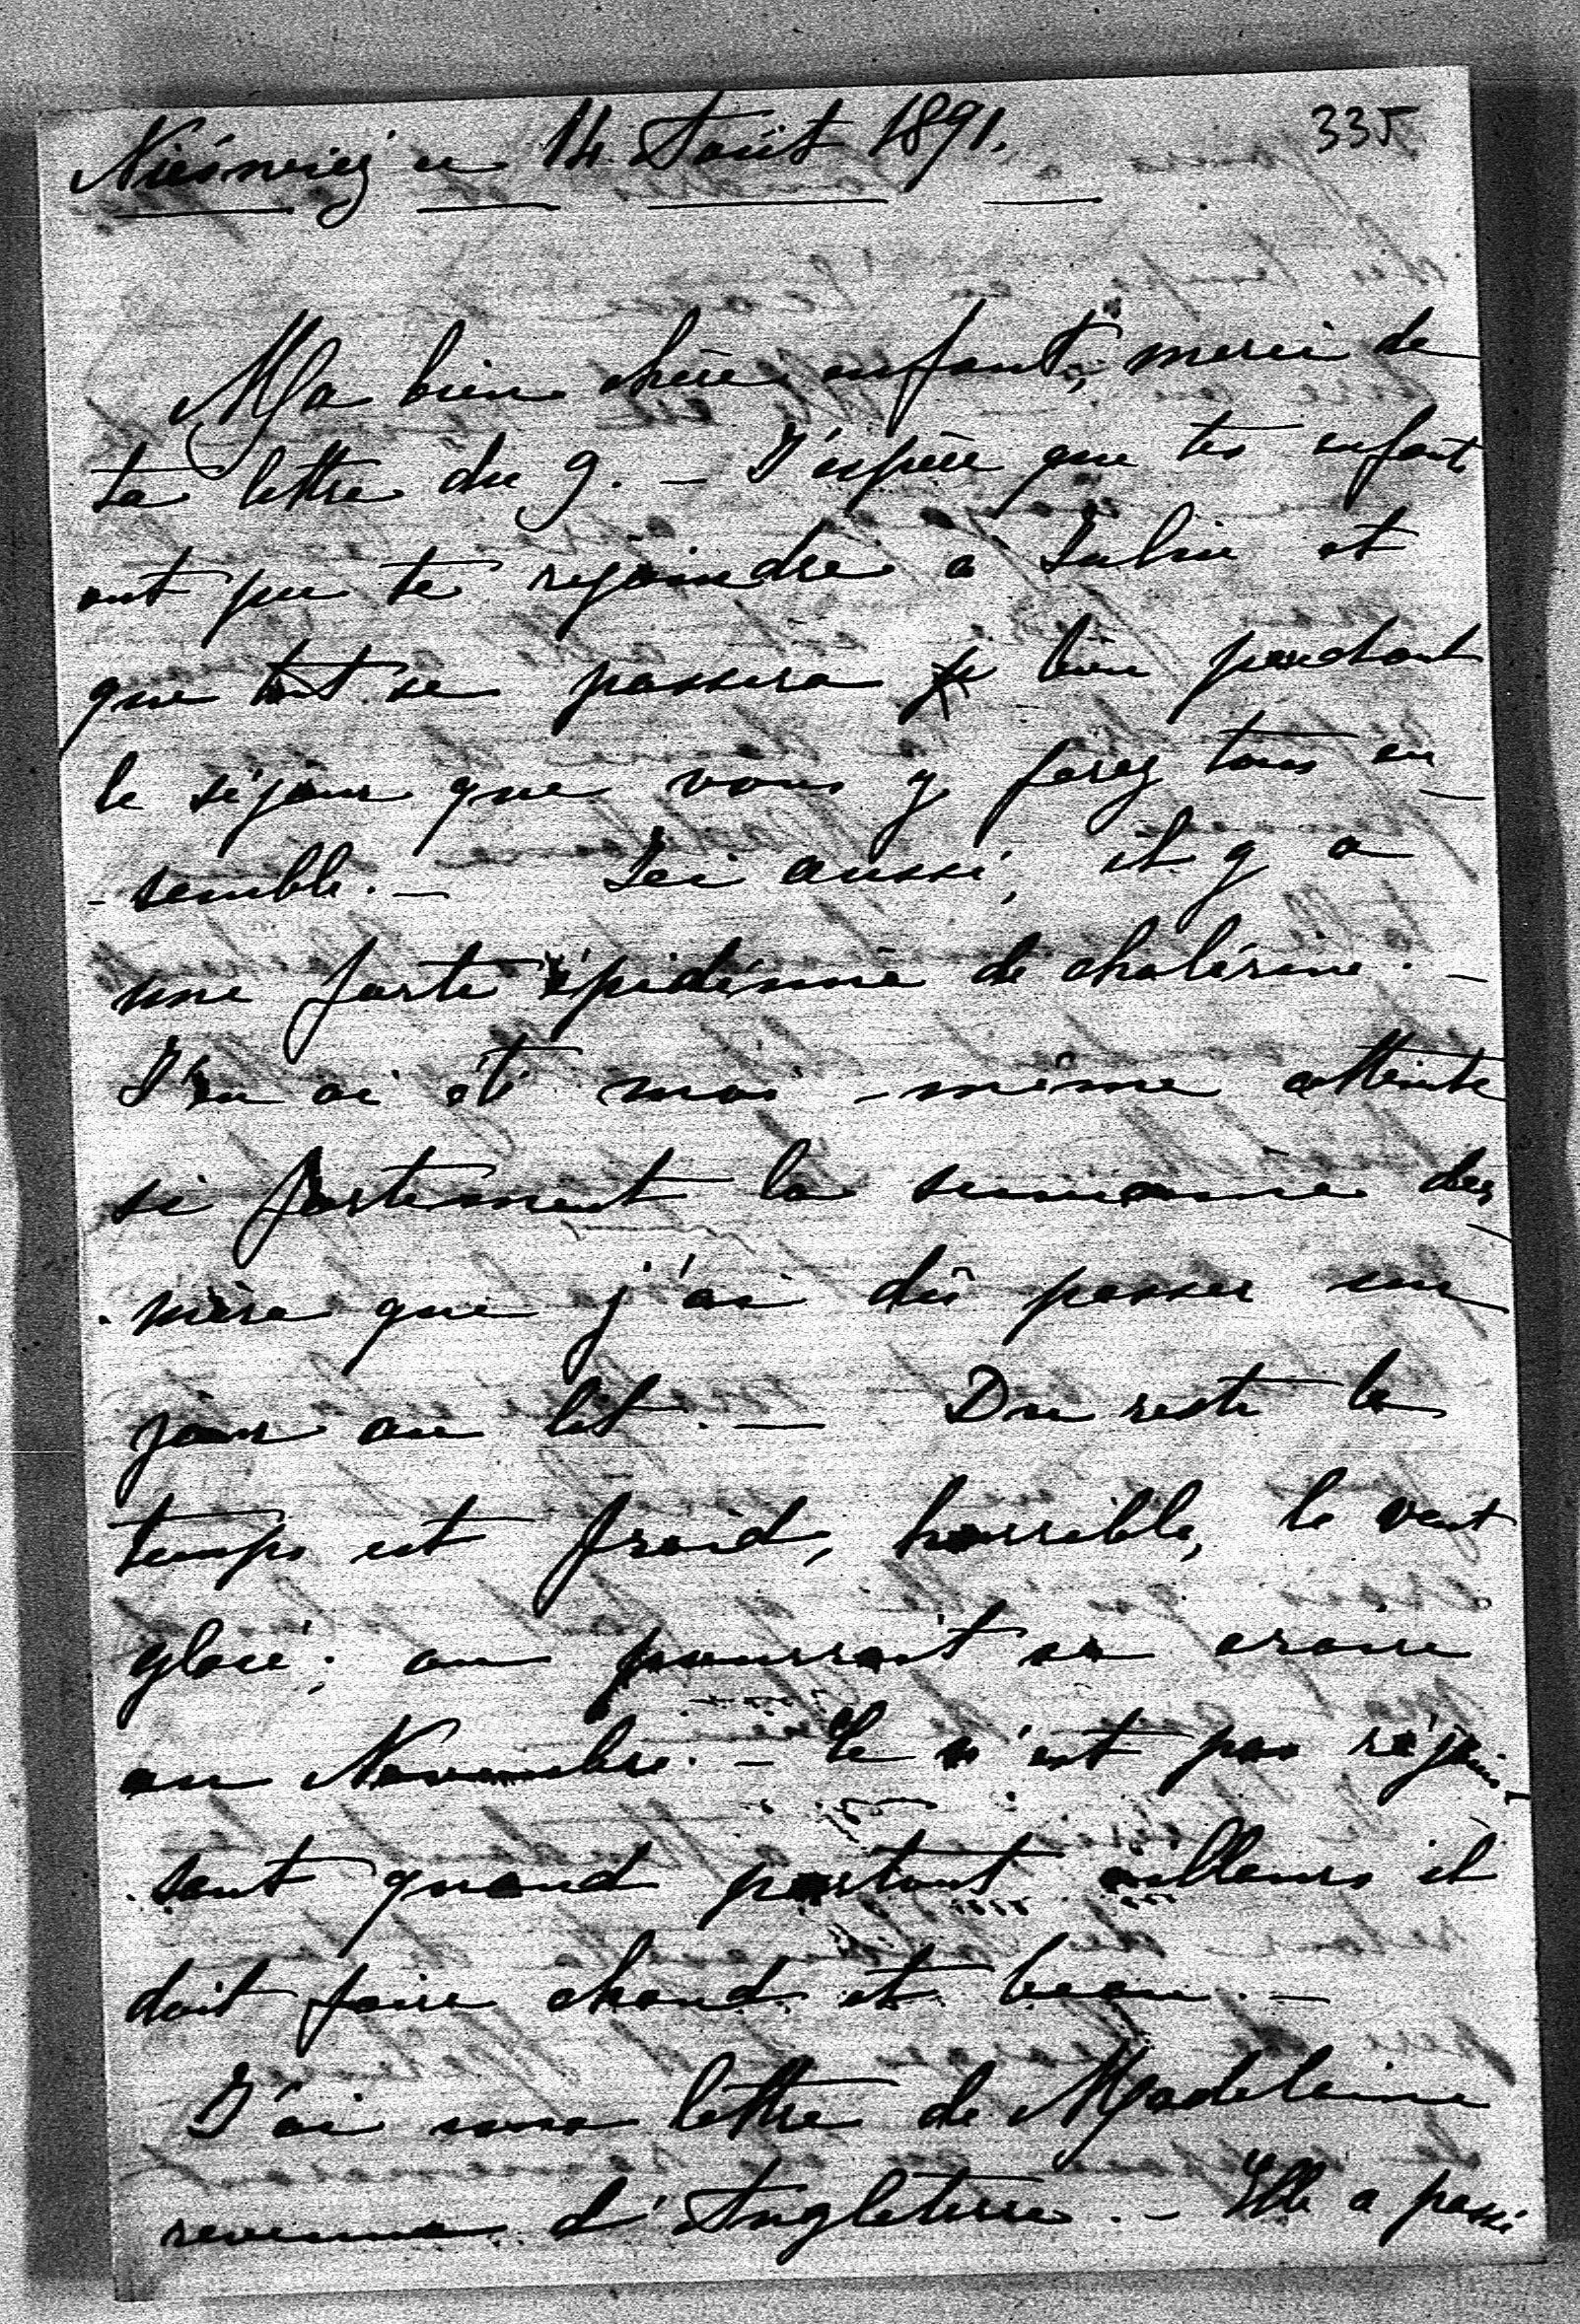 Nieśwież ce 14 Août 1891.
335
Ma bien chère enfant, merci de
ta lettre du 9. — J'espère que tes enfants
ont pu te rejoindre à et
que tout se passera bien pendant
le séjour que vous y ferez tous en
- semble. — Ici aussi, il y a
une forte épidémie de cholérine. —
J'en ai été moi-même atteinte
si fortement la semaine der
- nière que j'ai dû passer un
jour au lit. — Du reste le
temps est froid, horrible, le vent
glacé; on pourrait se croire
en Novembre. — Ce n'est pas réjouis-
- sant quand partout ailleurs il
doit faire chaud et beau. —
J'ai une lettre de Madeleine
revenue d'Angleterre. — Elle a passé